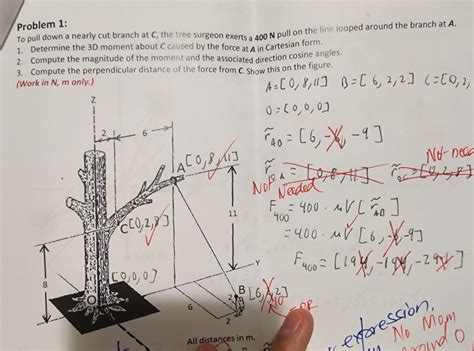 Problem 1:
To pull down a nearly cut branch at C, the tree surgeon exerts a 400 N pull on the line looped around the branch at A.
1. Determine the 3D moment about C caused by the force at A in Cartesian form.
2. Compute the magnitude of the moment and the associated direction cosine angles.
3. Compute the perpendicular distance of the force from C. Show this on the figure.
(Work in N, m only.)
A=[0,8,11] B=[6,2,2] C=[0,2,
O=[0,0,0]
r̃AO=[6,-6,-9]
Not nec
Not Needed
[0,8,11]
F400=400·uV[r̃AO]
=400·uV[6,-6,-9]
F400=[194,-194,-291]
Z
2
6
A[0,8,11]
C[0,2,8]
11
[0,0,0]
8
Y
O
B[6,
2
6
2
All distances in m.
expression,
No Mom
around O